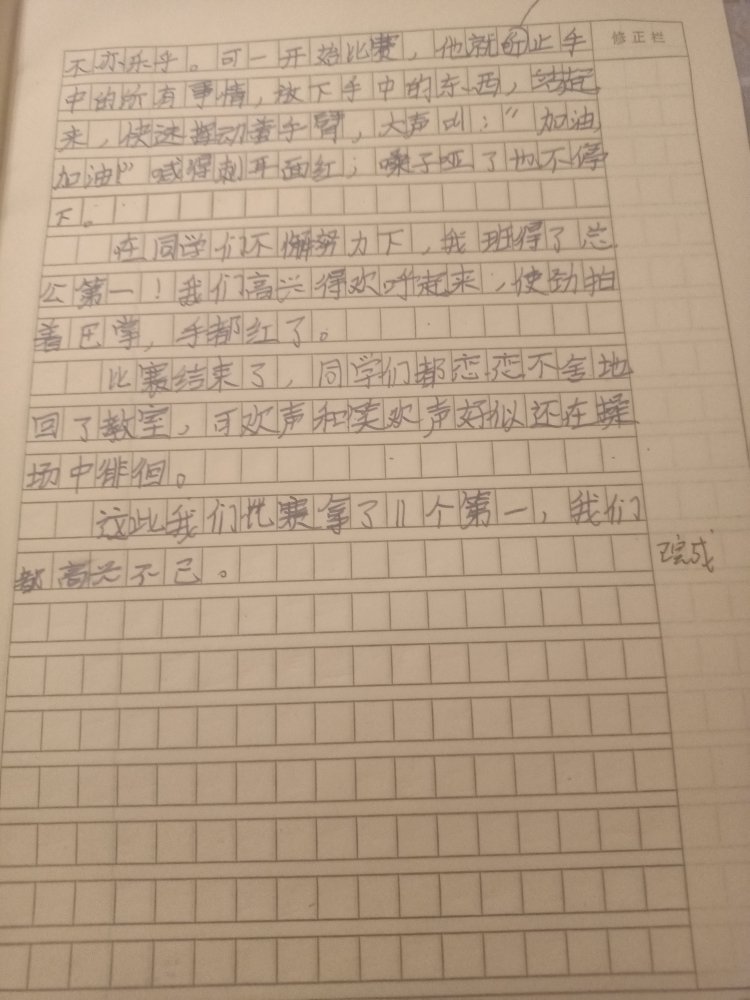 不亦乐乎。可一开始比赛，他就停止手
修正栏
中的所有事情，放下手中的东西，站起
来，快速挥动着手臂，大声叫：“加油
加油！”喊得刺耳面红；嗓子哑了也不停
下。
在同学们不懈努力下，我班得了总
公第一！我们高兴得欢呼起来，使劲拍
着巴掌，手都红了。
比赛结束了，同学们都恋恋不舍地
回了教室，可欢声和笑欢声好似还在操
场中徘徊。
这此我们比赛拿了11个第一，我们
都高兴不已。